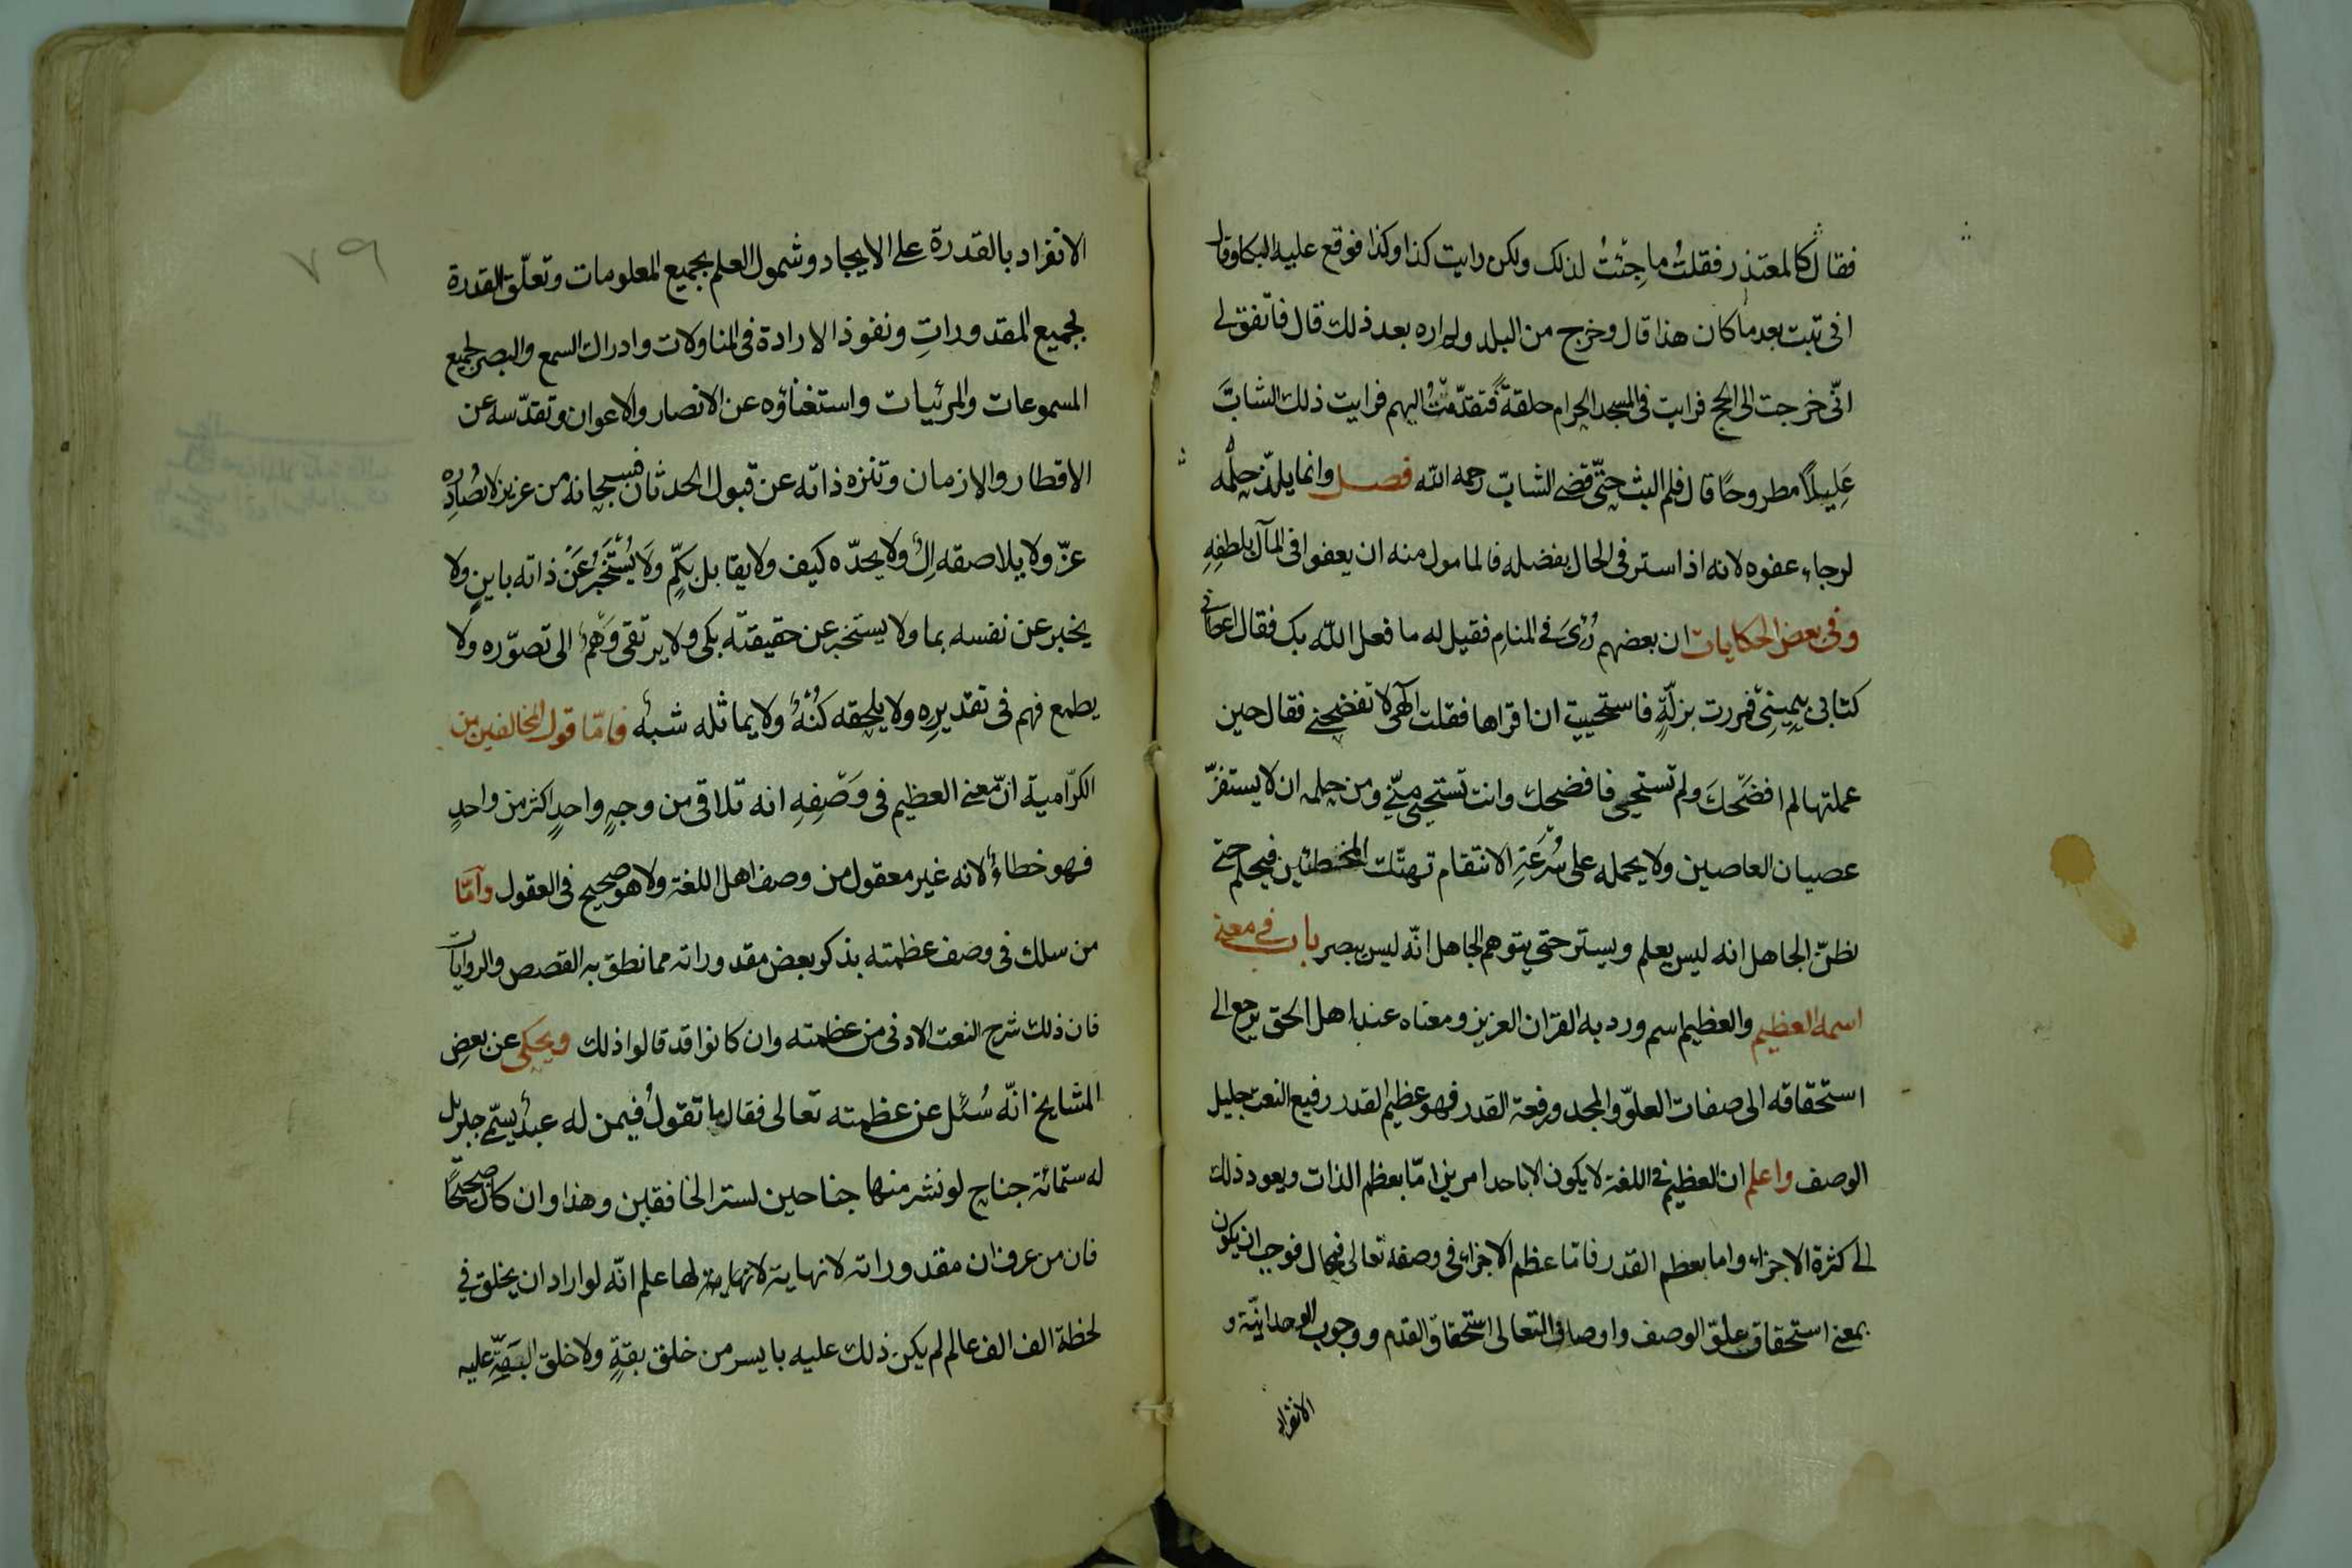 فقال كالمعتذر فقلتُ ما جِئتُ لذلك ولكن رايت كذا وكذا فوقع عليه البكا وقال
انى تبت بعد ما كان هذا قال وخرج من البلد ولم اره بعد ذلك قال فاتّفق لى
انّى خرجت الى الحج فرايت فى المسجد الحرام حلقةً فتقدّمتُ اليهم فرايت ذلك الشابَّ
عَلِيلًا مطروحًا قال فلم البث حتّى قضى الشابّ رحمه الله فصل وانما يلذّ حِلْمُه
لرجاء عفوه لانه اذا ستر فى الحال بفضله فالمامول منه ان يعفوا فى المآل بلطفِهِ
وفى بعض الحكايات ان بعضهم رُئىَ فى المنامِ فقيل له ما فعل الله بك فقال اعطانى
كتابى بيمِينِى فمررت بزلّةٍ فاستحييت ان اقراها فقلت الٓهى لا تفضحنى فقال حين
عملتها لم افضَحْكَ ولم تستحيى فافضحك وانت تستحيى منّى ومن حلمه ان لا يستفزّ
عصيان العاصين ولا يحمله على سُرْعَةِ الانتقام تهتّك المخطئين فيحلم حتى
يظنّ الجاهل انه ليس يعلم ويستر حتى يتوهم الجاهل انّه ليس يبصر باب فى معنى
اسمه العظيم والعظيم اسم ورد به القران العزيز ومعناه عند اهل الحق يرجع الى
استحقاقه الى صفات العلوّ والمجد ورفعة القدر فهو عظيم القدر رفيع النعت جليل
الوصف واعلم ان العظيم فى اللغة لا يكون الا باحد امرين امّا بعظم الذات ويعود ذلك
الى كثرة الاجزاء واما بعظم القدر فامّا عظم الاجزاء فى وصفه تعالى فمحال فوجب ان يكون
بمعنى استحقاق علوّ الوصف واوصاف التعالى استحقاق القدم ووجوب الوحدانيّة و
الانفراد
٧٩
الانفراد بالقدرة على الايجاد وشمول العلم بجميع المعلومات وتعلّق القدرة
بجميع المقدوراتِ ونفوذ الارادة فى المتناولات وادراك السمع والبصر لجميع
المسموعات والمرئيات واستغناؤه عن الانصار والاعوان وتقدّسه عن
الاقطار والازمان وتنزه ذاته عن قبول الحدثان فسبحانه من عزيز لا تصُادِره
عزّ ولا يلاصقه اِلٌ ولا يحدّه كيف ولا يقابل بكمٍّ وَلَا يُسْتَخْبَرُ عَنْ ذاته باينٍ ولا
يخبر عن نفسه بما ولا يستخبر عن حقيقته بكى ولا يرتقى وَهْمٌ الى تصوّره ولا
يطمع فهم فى تقديرِه ولا يلحقه كُنْهٌ ولا يماثله شبهٌ فامّا قول المخالفين من
الكرّامية انّ معنى العظيم فى وَصْفِهِ انه تلاقى من وجهٍ واحدٍ اكثر من واحدٍ
فهو خطاءٌ لانه غير معقول من وصف اهل اللغة ولا هو صحيح فى العقول وامّا
من سلك فى وصف عظمته بذكر بعض مقدوراته مما نطق به القصص والروايات
فان ذلك شرح النعت الادنى من عظمته وان كانوا قد قالوا ذلك ويحكى عن بعضِ
المشايخ انّه سُئل عن عظمته تعالى فقال ما تقولُ فيمن له عبدٌ يسمّى جبريل
له ستمائة جناح لو نشر منها جناحين لستر الخافقين وهذا وان كان صحيحًا
فان من عرف ان مقدوراته لا نهاية لا نهاية لها علم انّه لو اراد ان يخلق فى
لحظة الف الف عالم لم يكن ذلك عليه بايسر من خلق بقةٍ ولا خلق البَقّةِ عليه